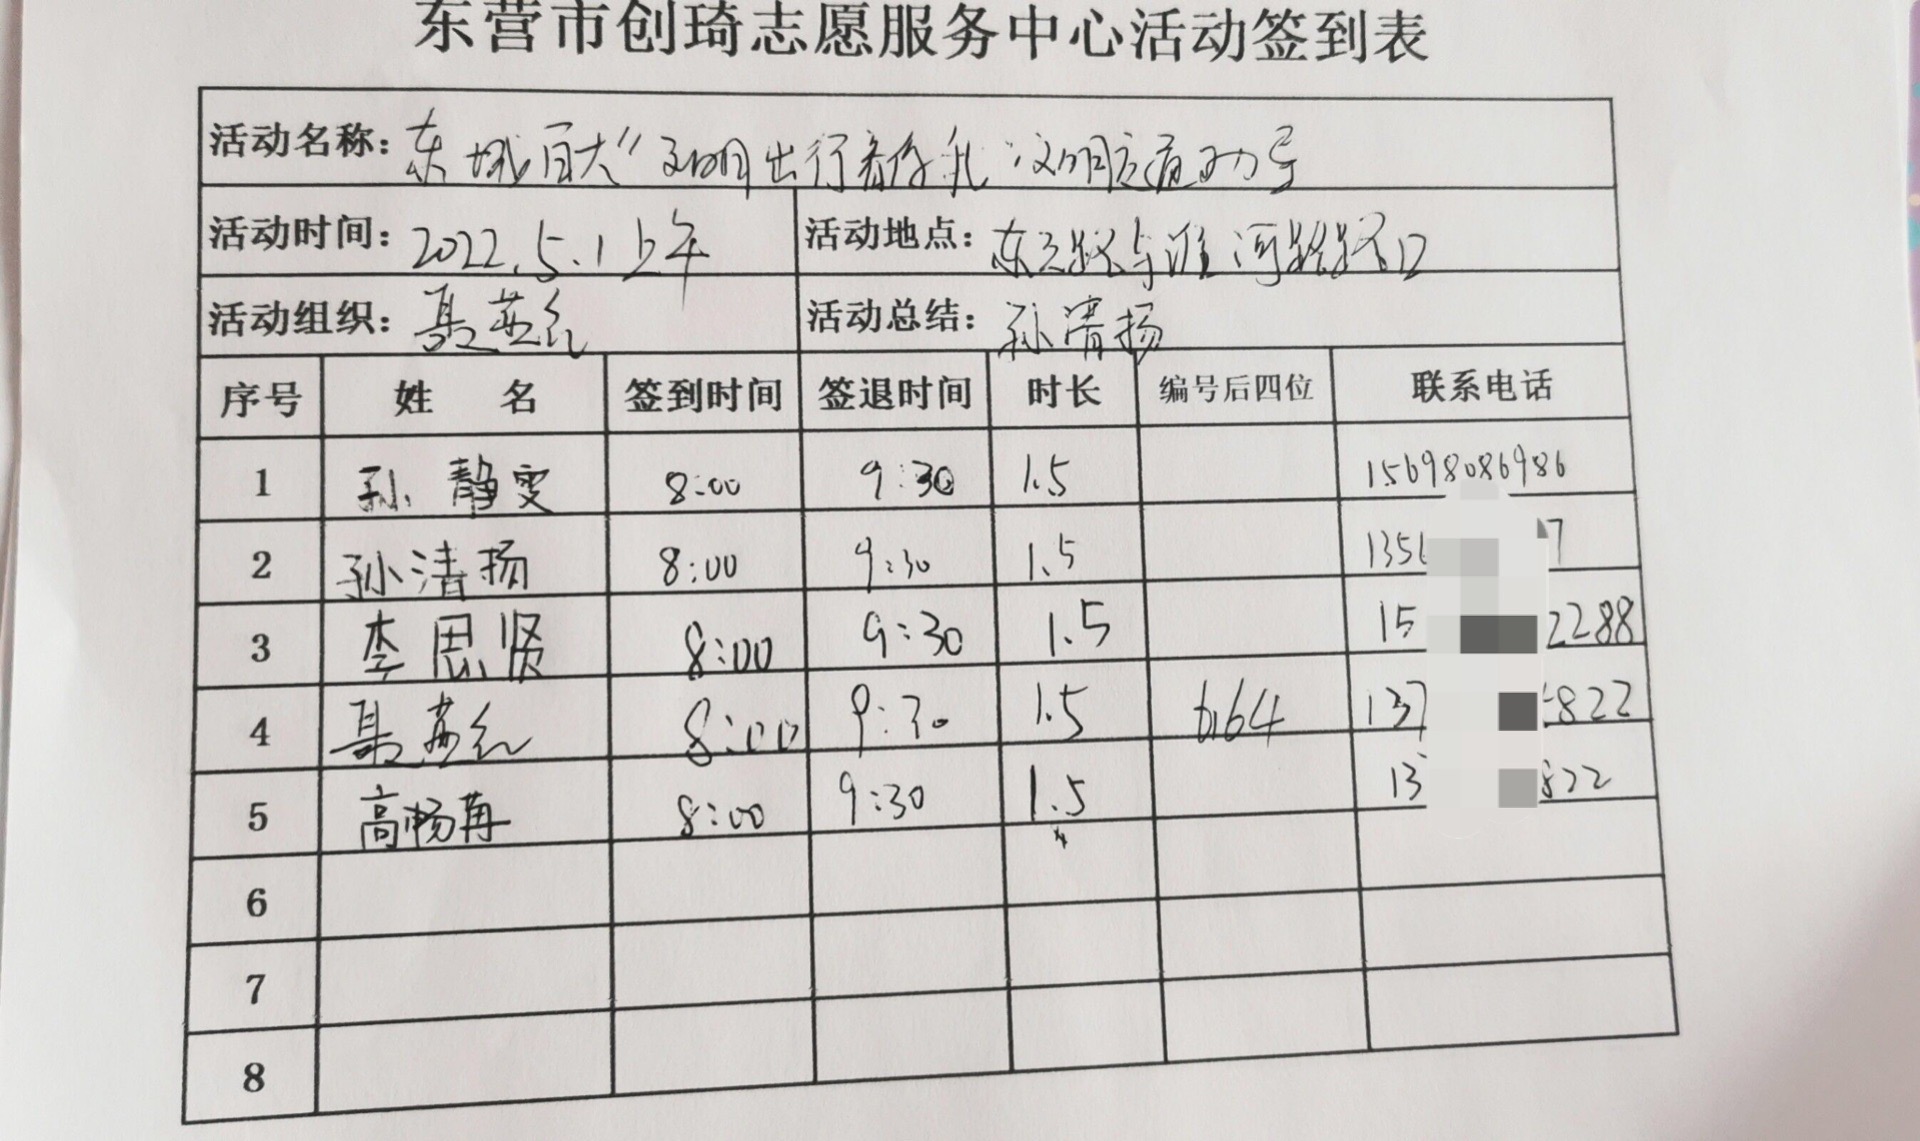 东营市创琦志愿服务中心活动签到表
活动名称: 东城百大"文明出行 文明交通
活动时间: 2022.5.1上午 活动地点: 东三路与淮河路路口
活动组织: 聂燕红 活动总结: 孙清扬
序号 姓名 签到时间 签退时间 时长 编号后四位 联系电话
1 孙静雯 8:00 9:30 1.5 15698086986
2 孙清扬 8:00 9:30 1.5 135 7
3 李思贤 8:00 9:30 1.5 15 2288
4 聂燕红 8:00 9:30 1.5 6164 137 822
5 高畅 8:00 9:30 1.5 13 822
6
7
8